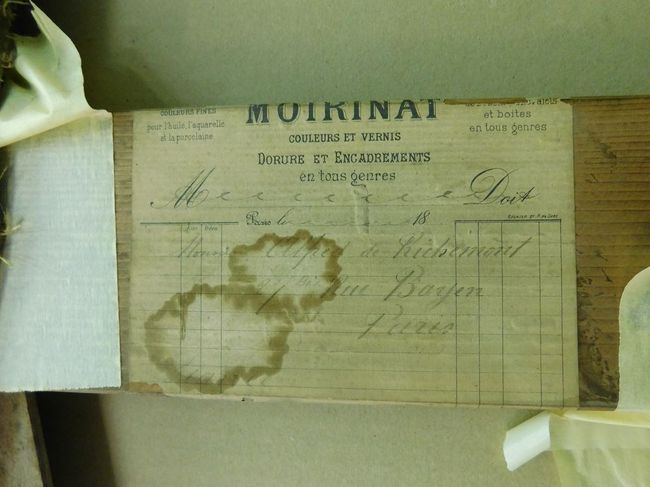 COULEURS FINES
pour l'huile, l'aquarelle
et la porcelaine
MOIRINAT
COULEURS ET VERNIS
DORURE ET ENCADREMENTS
en tous genres
et boîtes
en tous genres
M Doit
Paris le 18
Alfred de Richemont
Rue Bayen
Paris